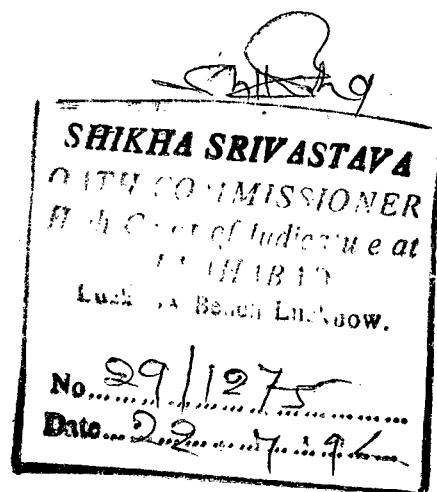 SHIKHA SRIVASTAVA
OATH COMMISSIONER
High Court of Judicature at
ALLAHABAD
Lucknow Bench Lucknow.
No. 29/1275
Date. 22.7.